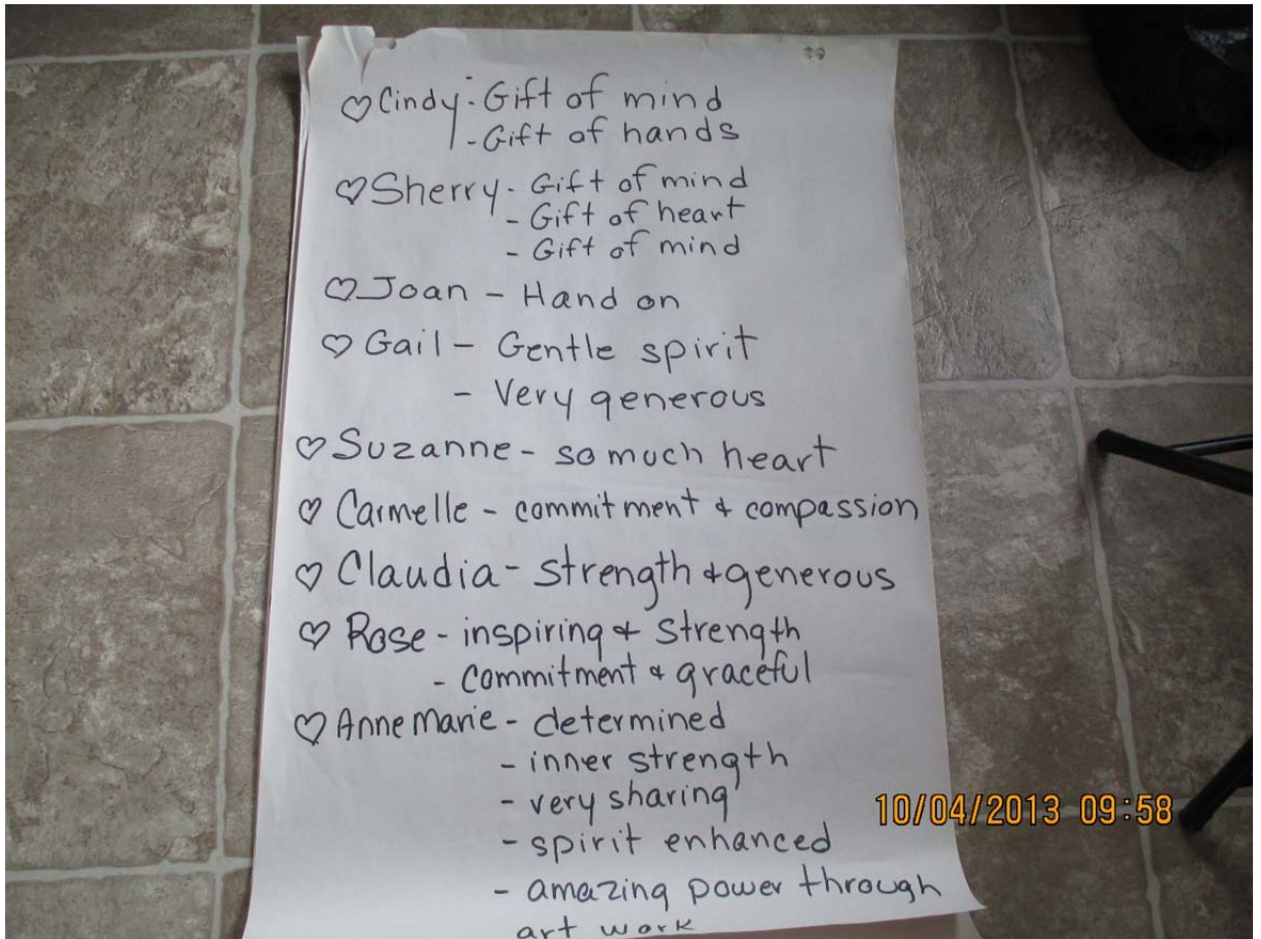 ♡ Cindy - Gift of mind
- Gift of hands
♡ Sherry - Gift of mind
- Gift of heart
- Gift of mind
♡ Joan - Hand on
♡ Gail - Gentle spirit
- Very generous
♡ Suzanne - so much heart
♡ Carmelle - commitment & compassion
♡ Claudia - strength & generous
♡ Rose - inspiring & strength
- commitment & graceful
♡ Anne Marie - determined
- inner strength
- very sharing
- spirit enhanced
- amazing power through
art work
10/04/2013 09:58